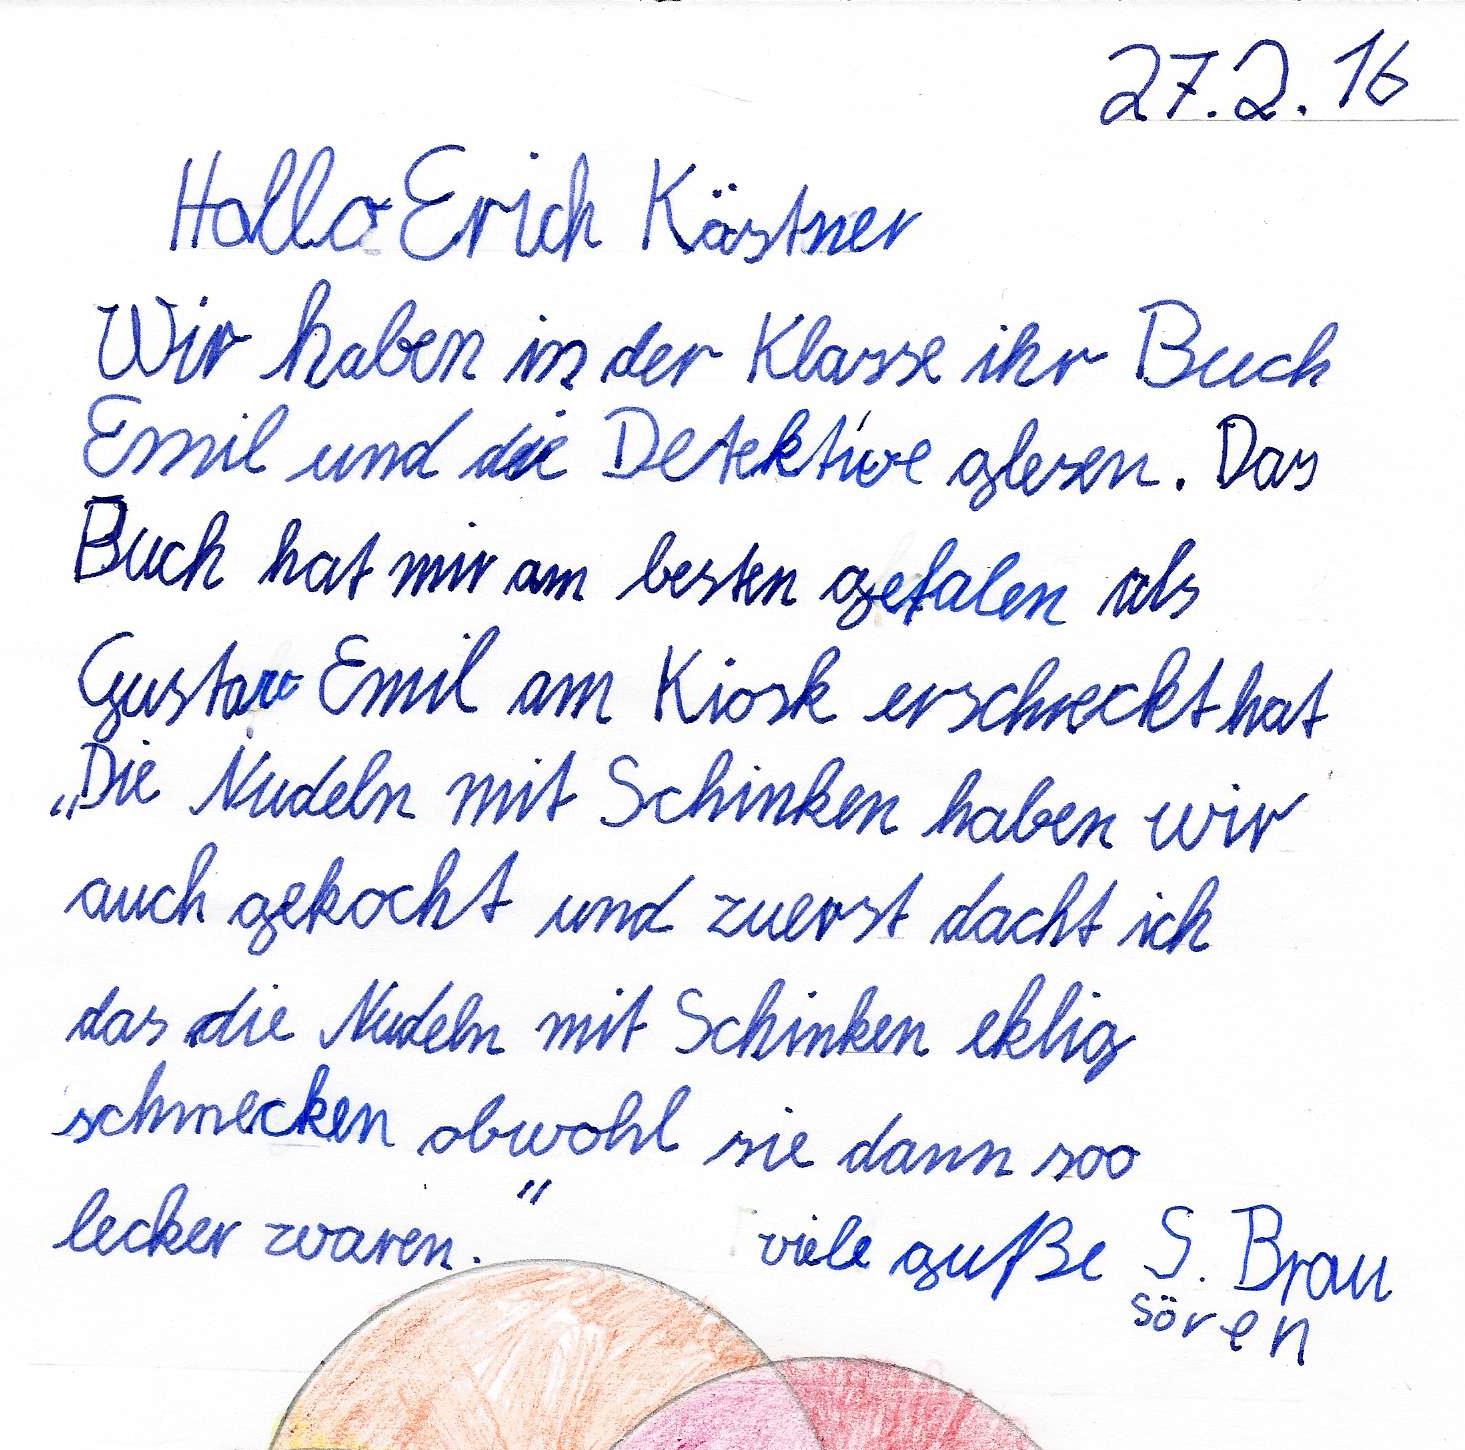 27.2.16
Hallo Erich Kästner
Wir haben in der Klasse ihr Buch
Emil und die Detektive glesen. Das
Buch hat mir am besten gefalen als
Gustav Emil am Kiosk erschreckt hat
„Die Nudeln mit Schinken haben wir
auch gekocht und zuerst dacht ich
das die Nudeln mit Schinken eklig
schmecken obwohl sie dann soo
lecker waren.“ viele guße S. Brau
Sören